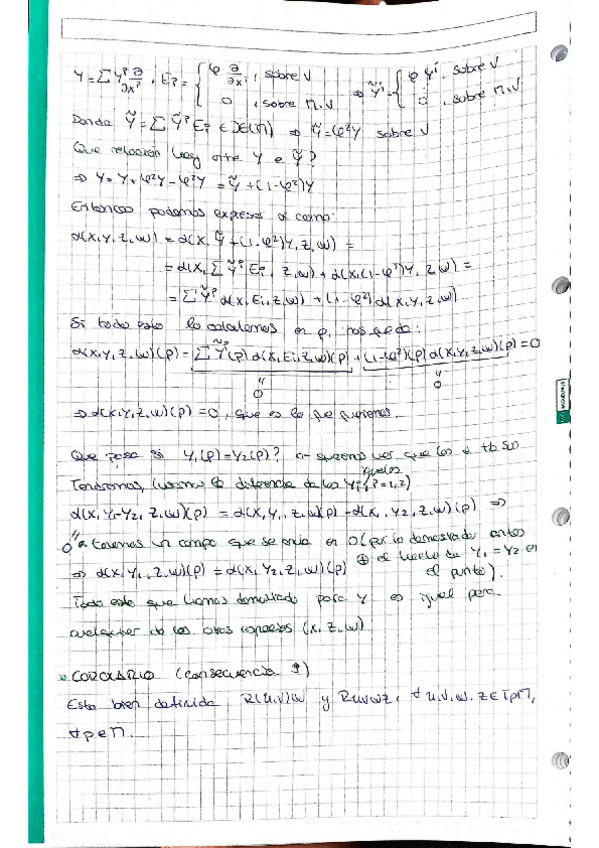 Y = ∑ Yⁱ ∂/∂xⁱ, Eᵢ = { φ ∂/∂xᵢ, sobre V ⇒ Ỹⁱ = { φ Yⁱ, sobre V
0, sobre M\V 0, sobre M\V
Donde Ỹ = ∑ Ỹⁱ Eᵢ ∈ X(M) ⇒ Ỹ = φ²Y sobre V
Que relación hay entre Y e Ỹ?
⇒ Y = Y + φ²Y − φ²Y = Ỹ + (1−φ²)Y
Entonces podemos expresar α como:
α(X,Y,Z,W) = α(X, Ỹ + (1−φ²)Y, Z, W) =
= α(X, ∑ Ỹⁱ Eᵢ, Z, W) + α(X, (1−φ²)Y, Z, W) =
= ∑ Ỹⁱ α(X, Eᵢ, Z, W) + (1−φ²) α(X, Y, Z, W)
Si todo esto lo calculamos en p, nos queda:
α(X,Y,Z,W)(p) = ∑ Ỹⁱ(p) α(X,Eᵢ,Z,W)(p) + (1−φ²)(p) α(X,Y,Z,W)(p) = 0
" "
0 0
⇒ α(X,Y,Z,W)(p) = 0, que es lo que queremos.
Que pasa si Y₁(p) = Y₂(p)? queremos ver que los α tb son
iguales
Tendremos, (usamos la diferencia de los Yᵢ, i=1,2)
α(X, Y₁−Y₂, Z, W)(p) = α(X, Y₁, Z, W)(p) − α(X, Y₂, Z, W)(p) ⇒
"
0 tenemos un campo que se anula en 0 (por lo demostrado antes
⊕ el hecho de Y₁ = Y₂ en
⇒ α(X, Y₁, Z, W)(p) = α(X, Y₂, Z, W)(p) el punto).
Todo esto que hemos demostrado para Y es igual para
cualquier de los otros (X, Z, W)
COROLARIO (consecuencia 1)
Esta bien definida R(u,v)w y Ruvwz, ∀ u,v,w,z ∈ TpM,
∀ p ∈ M.